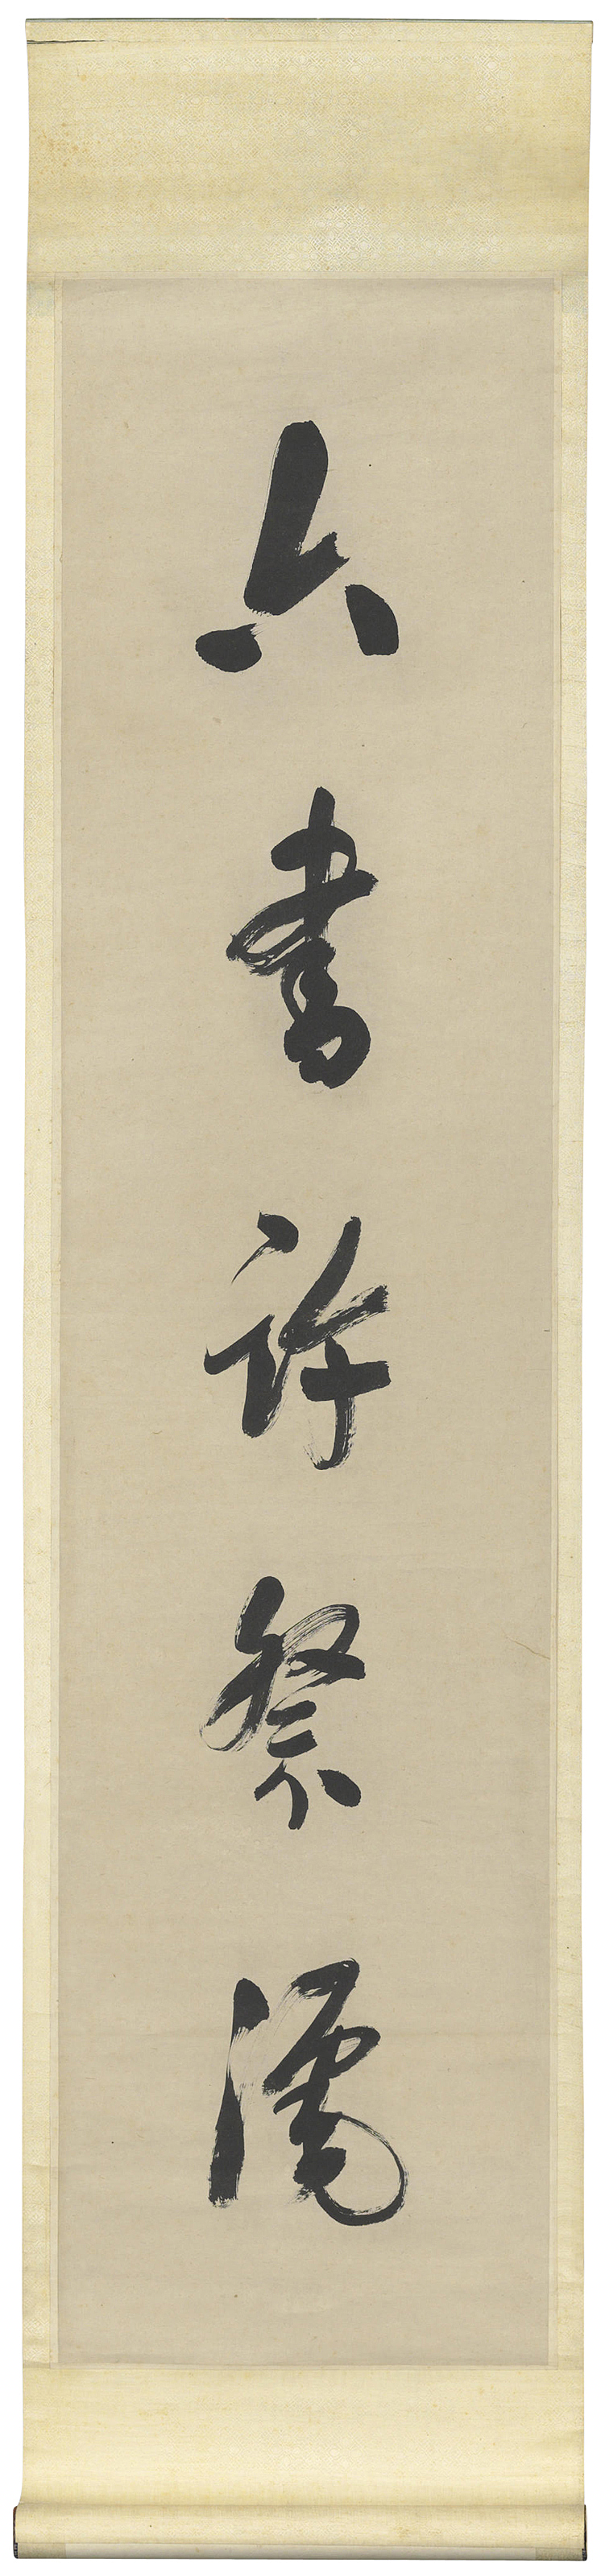 六書許祭酒